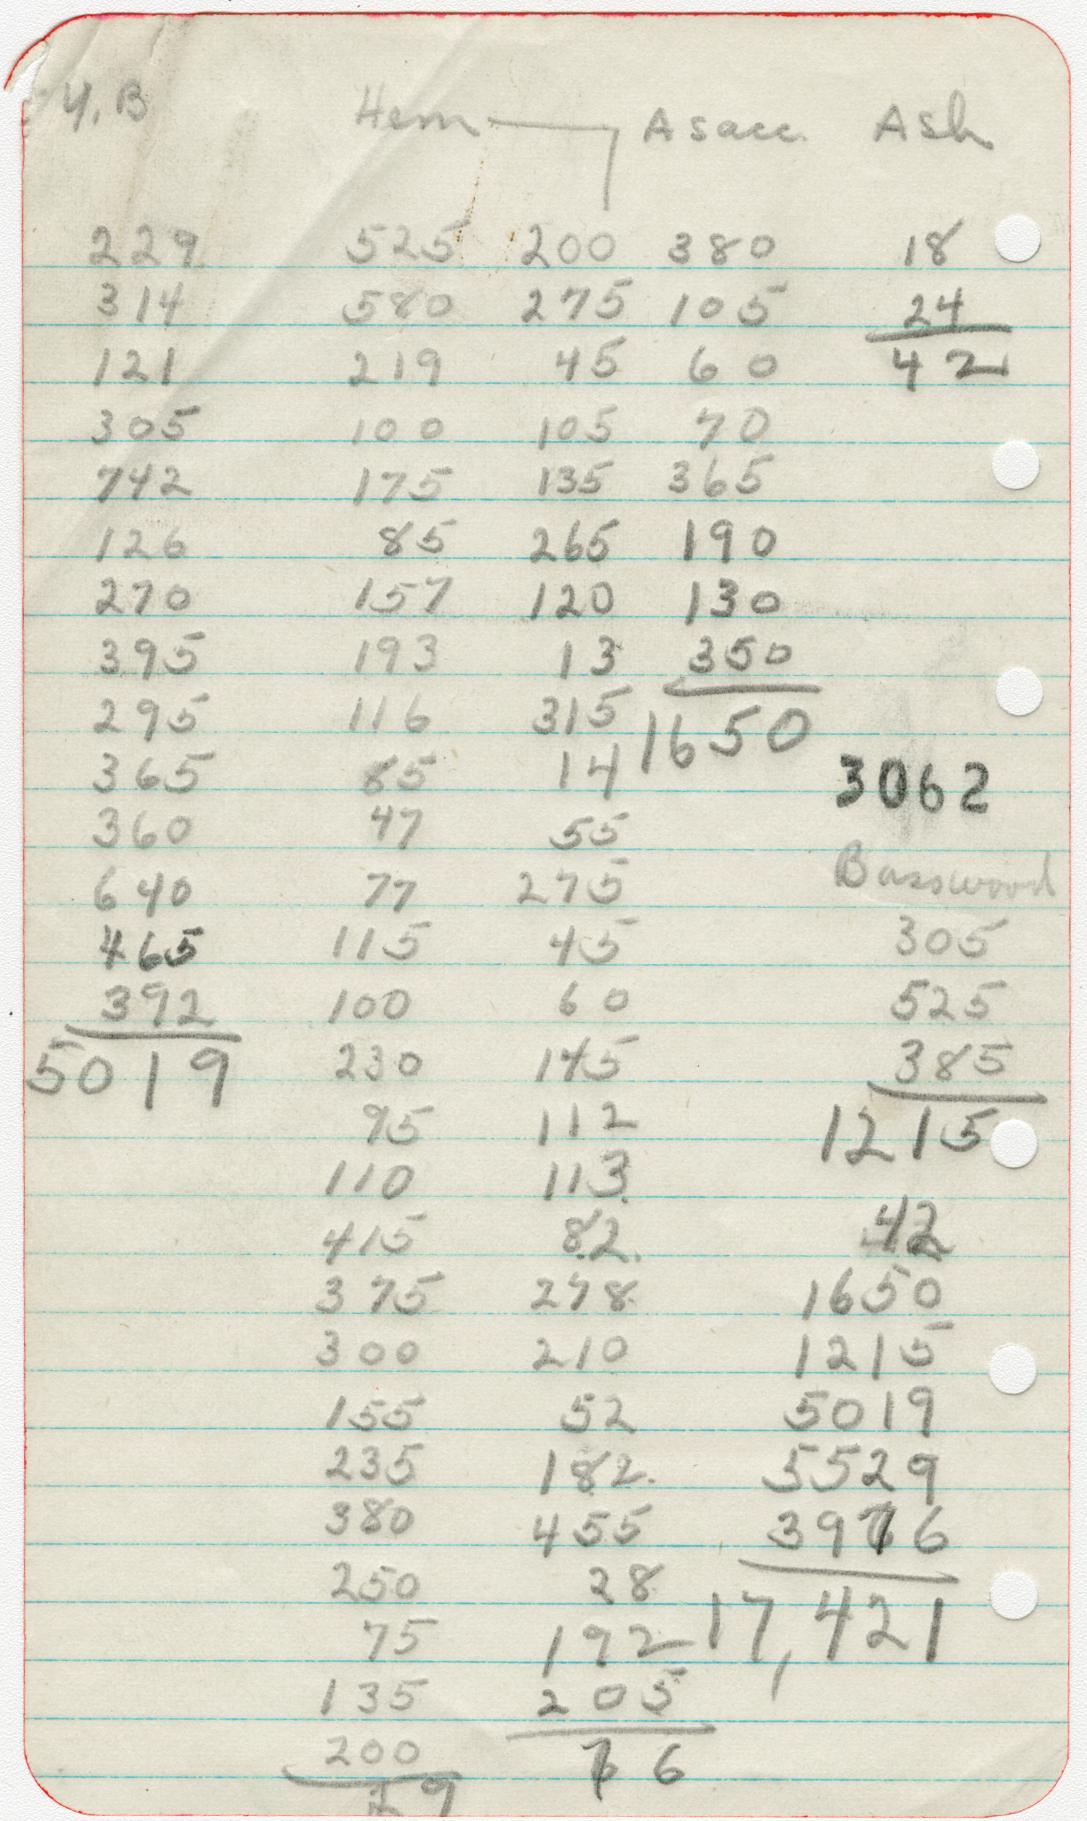 Y.B Hem Asacc. Ash
229 525 200 380 18
314 580 275 105 24
121 219 45 60 42
305 100 105 70
742 175 135 365
126 85 265 190
270 157 120 130
395 193 13 350
295 116 315 1650
365 85 14 3062
360 47 55
640 77 275 Basswood
465 115 45 305
392 100 60 525
5019 230 145 385
95 112 1215
110 113
415 82 42
375 278 1650
300 210 1215
155 52 5019
235 182 5529
380 455 3976
250 28
75 192 17,421
135 205
200 76
9